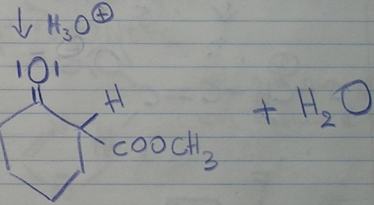 ↓ H₃O⊕
|O|
H
COOCH₃
+ H₂O